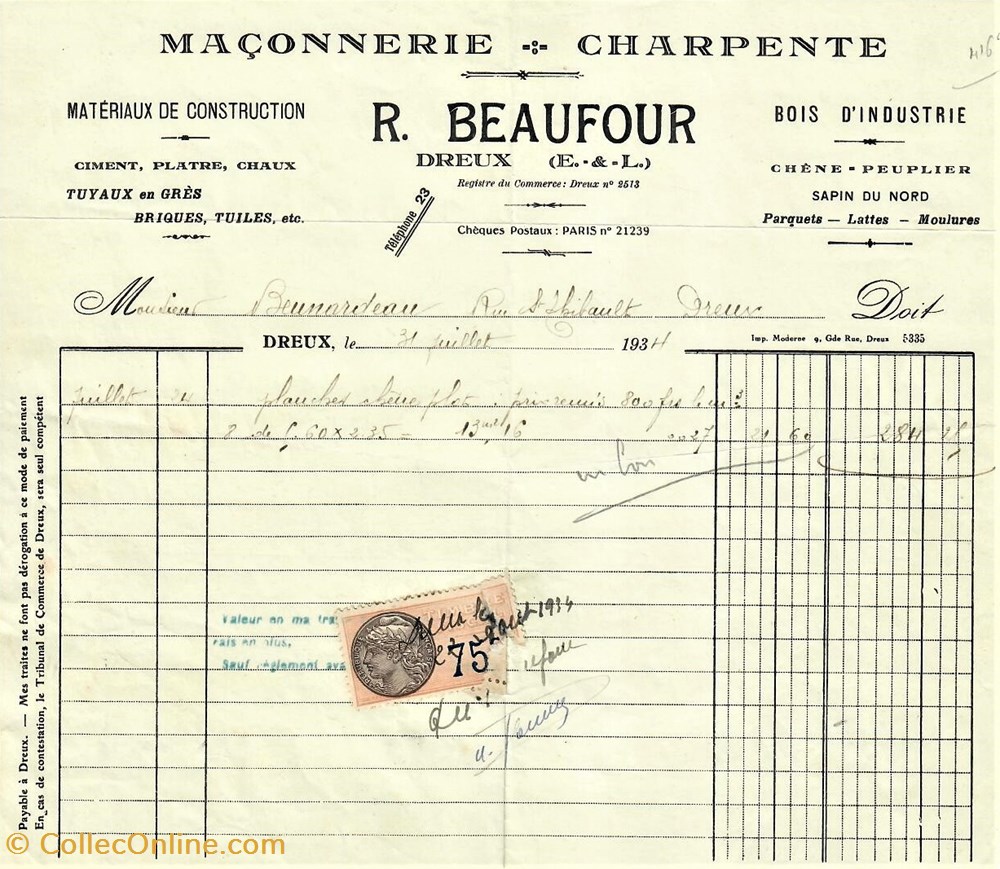 MAÇONNERIE CHARPENTE
416
MATÉRIAUX DE CONSTRUCTION
CIMENT, PLATRE, CHAUX
TUYAUX en GRÈS
BRIQUES, TUILES, etc.
R. BEAUFOUR
DREUX (E.-&-L.)
Registre du Commerce: Dreux nº 2513
Téléphone 23
Chèques Postaux: PARIS nº 21239
BOIS D'INDUSTRIE
CHÊNE - PEUPLIER
SAPIN DU NORD
Parquets — Lattes — Moulures
Monsieur Beunardeau Rue St Thibault Dreux Doit
DREUX, le 31 juillet 1934
Imp. Moderne 9, Gde Rue, Dreux 5335
juillet 24 plancher chêne prix remis 800 frs le m3
8 de 5,60 x 2.35 = 13 16 0027 21 60 284
Valeur en ma
rais en plus,
Sauf règlement
75
1934
Payable à Dreux. — Mes traites ne font pas dérogation à ce mode de paiement
En cas de contestation, le Tribunal de Commerce de Dreux, sera seul compétent
© CollecOnline.com